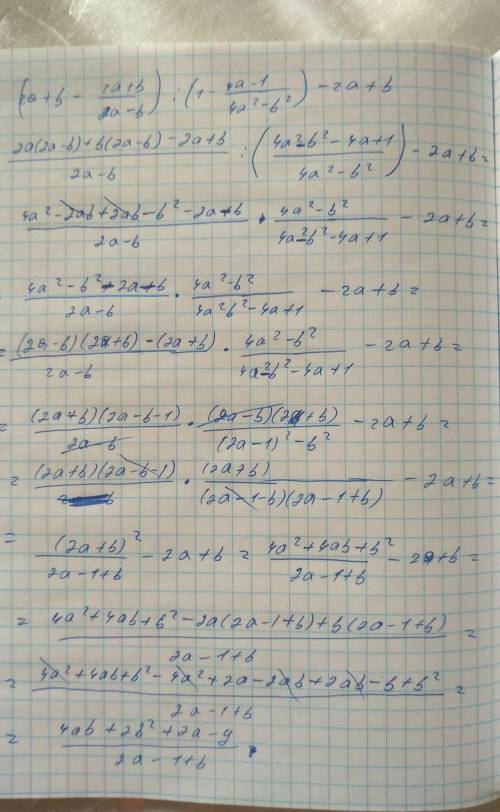 (2a+b - (2a+b)/(2a-b)) : (1 - (4a-1)/(4a²-b²)) - 2a+b
(2a(2a-b)+b(2a-b)-2a+b)/(2a-b) : ((4a²-b²-4a+1)/(4a²-b²)) - 2a+b=
(4a²-2ab+2ab-b²-2a+b)/(2a-b) · (4a²-b²)/(4a²-b²-4a+1) - 2a+b=
(4a²-b²-2a+b)/(2a-b) · (4a²-b²)/(4a²b²-4a+1) - 2a+b=
=((2a-b)(2a+b)-(2a+b))/(2a-b) · (4a²-b²)/(4a²-b²-4a+1) - 2a+b=
=((2a+b)(2a-b-1))/(2a-b) · ((2a-b)(2a+b))/((2a-1)²-b²) - 2a+b=
=((2a+b)(2a-b-1)) · (2a+b)/((2a-1-b)(2a-1+b)) - 2a+b=
= (2a+b)²/(2a-1+b) - 2a+b = (4a²+4ab+b²)/(2a-1+b) - 2a+b=
= (4a²+4ab+b²-2a(2a-1+b)+b(2a-1+b))/(2a-1+b) =
= (4a²+4ab+b²-4a²+2a-2ab+2ab-b+b²)/(2a-1+b) =
= (4ab+2b²+2a-y)/(2a-1+b).